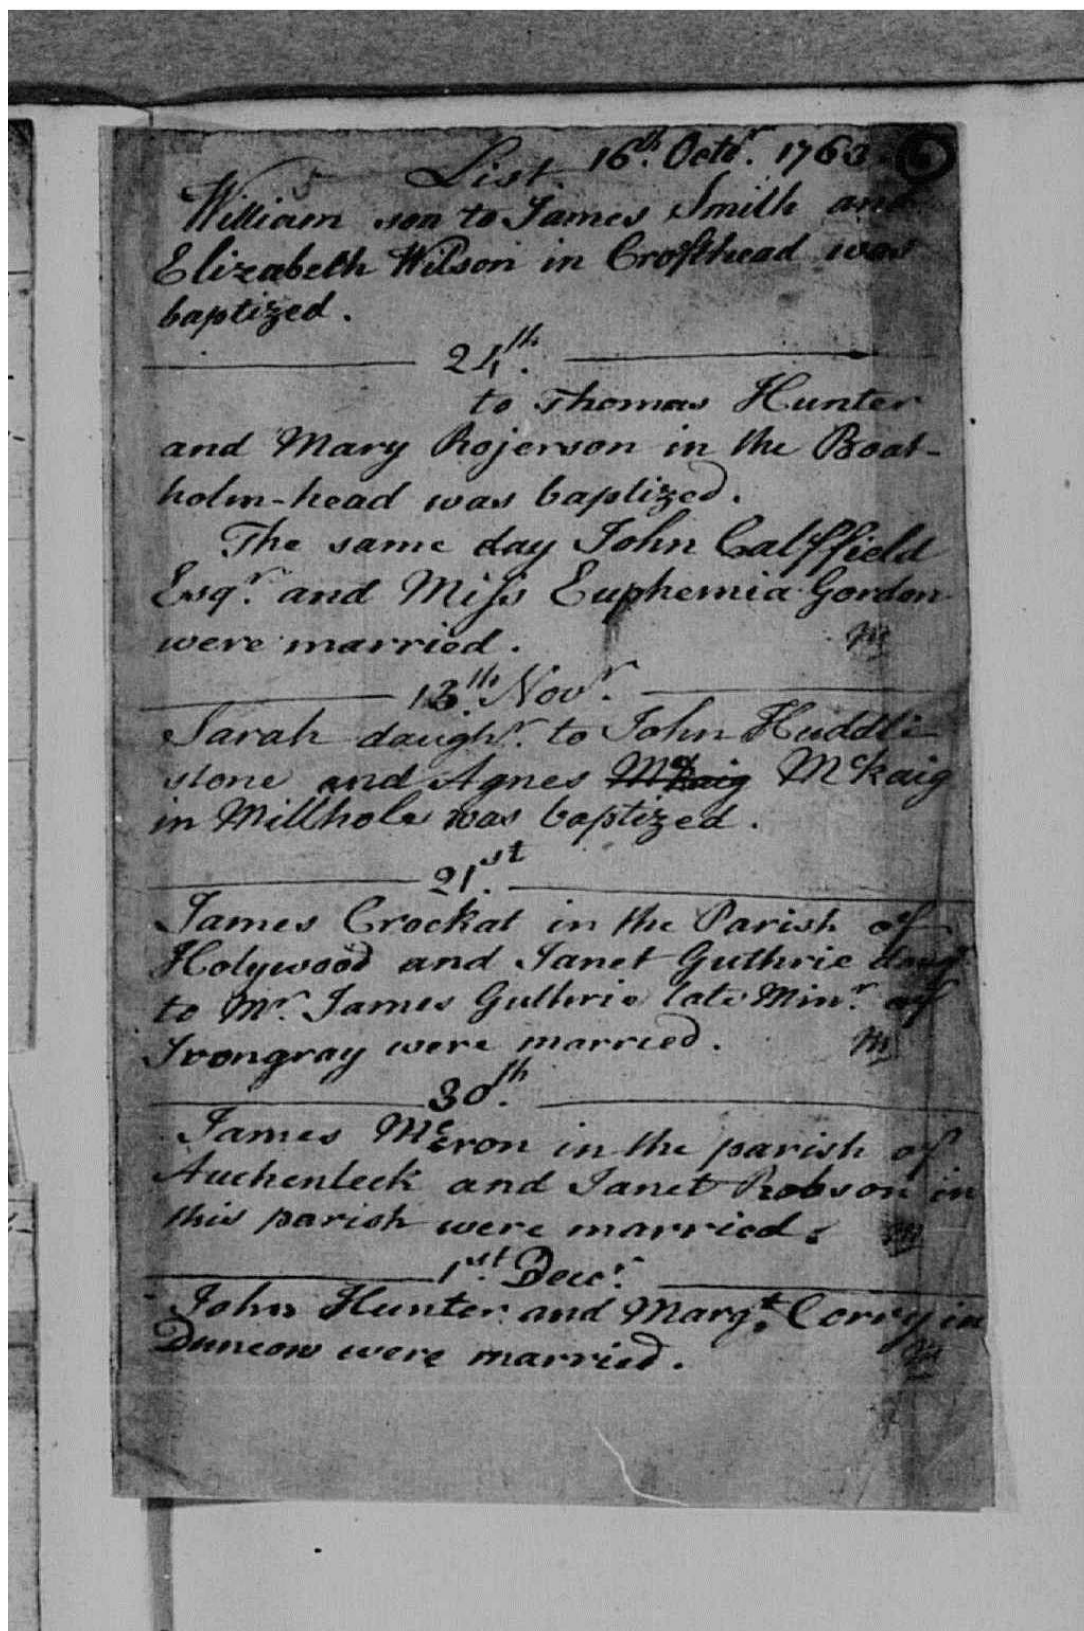 List 16th. Octr. 1763
William son to James Smith and
Elizabeth Wilson in Crofthead was
baptized.
24th.
to Thomas Hunter
and Mary Rojerson in the Boat-
holm-head was baptized.
The same day John Calffield
Esqr. and Miss Euphemia Gordon
were married. M
13th. Novr.
Sarah daughr. to John Huddle
stone and Agnes McKaig McKaig
in Millhole was baptized.
21st.
James Crockat in the Parish of
Holywood and Janet Guthrie daugr
to Mr. James Guthrie late Minr. of
Irongray were married. M
30th.
James McCron in the parish of
Auchenleck and Janet Robson in
this parish were married. M
1st. Decr.
John Hunter and Margt. Corry in
Duncow were married. M